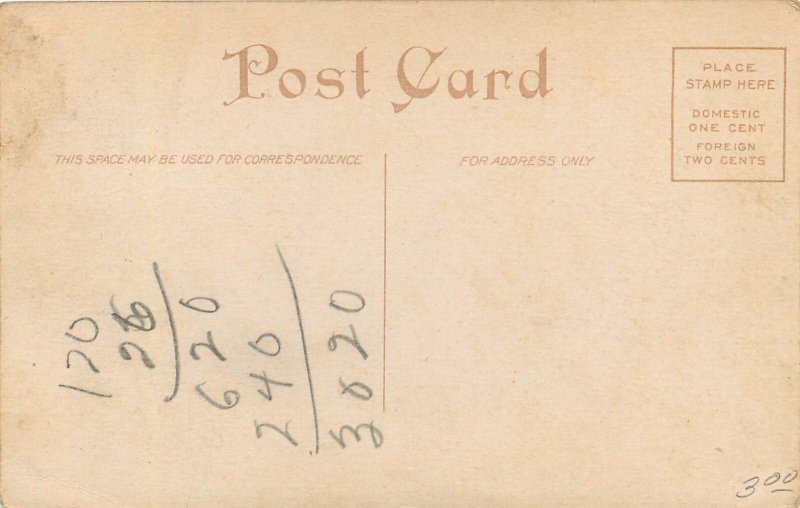 Post Card
PLACE
STAMP HERE
DOMESTIC
ONE CENT
FOREIGN
TWO CENTS
THIS SPACE MAY BE USED FOR CORRESPONDENCE
FOR ADDRESS ONLY
120
26
620
240
3020
3 00